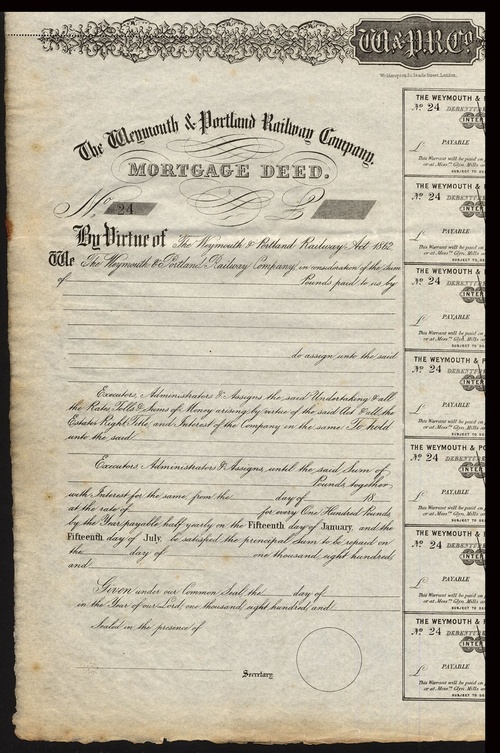 W & P.R. Co.
Waterlow & Sons, London.
The Weymouth & Portland Railway Company.
MORTGAGE DEED.
No. 24 £
By Virtue of The Weymouth & Portland Railway Act 1862
We The Weymouth & Portland Railway Company, in consideration of the Sum
of Pounds paid to us by
do assign unto the said
Executors, Administrators & Assigns, the said Undertaking & all
the Rates, Tolls & Sums of Money arising by virtue of the said Act & all the
Estate Right Title, and Interest of the Company in the same To hold
unto the said
Executors, Administrators & Assigns, until the said Sum of
Pounds, together
with Interest for the same, from the day of 18
at the rate of for every One Hundred Pounds
by the Year, payable half yearly on the Fifteenth day of January, and the
Fifteenth day of July, be satisfied, the principal Sum to be repaid on
the day of one thousand, eight hundred,
and
Given under our Common Seal, the day of
in the Year of our Lord, one thousand, eight hundred, and
Sealed in the presence of
Secretary
THE WEYMOUTH &
No. 24 DEBENTU
INTE
£ PAYABLE
This Warrant will be paid on
or at Messrs. Glyn, Mills
SUBJECT TO
THE WEYMOUTH &
No. 24 DEBENTU
INTE
£ PAYABLE
This Warrant will be paid on
or at Messrs. Glyn, Mills
SUBJECT TO DE
THE WEYMOUTH & P
No. 24 DEBENTU
INTE
£ PAYABLE
This Warrant will be paid on
or at Messrs. Glyn, Mills
SUBJECT TO DE
THE WEYMOUTH & P
No. 24 DEBENTU
INTE
£ PAYABLE
This Warrant will be paid on
or at Messrs. Glyn, Mills
SUBJECT TO
THE WEYMOUTH & PO
No. 24 DEBENTU
INTE
£ PAYABLE
This Warrant will be paid on
or at Messrs. Glyn, Mills
SUBJECT TO
THE WEYMOUTH &
No. 24 DEBENTU
INTE
£ PAYABLE
This Warrant will be paid on
or at Messrs. Glyn, Mills
SUBJECT TO
THE WEYMOUTH &
No. 24 DEBENTU
INTE
£ PAYABLE
This Warrant will be paid on
or at Messrs. Glyn, Mills
SUBJECT TO DE